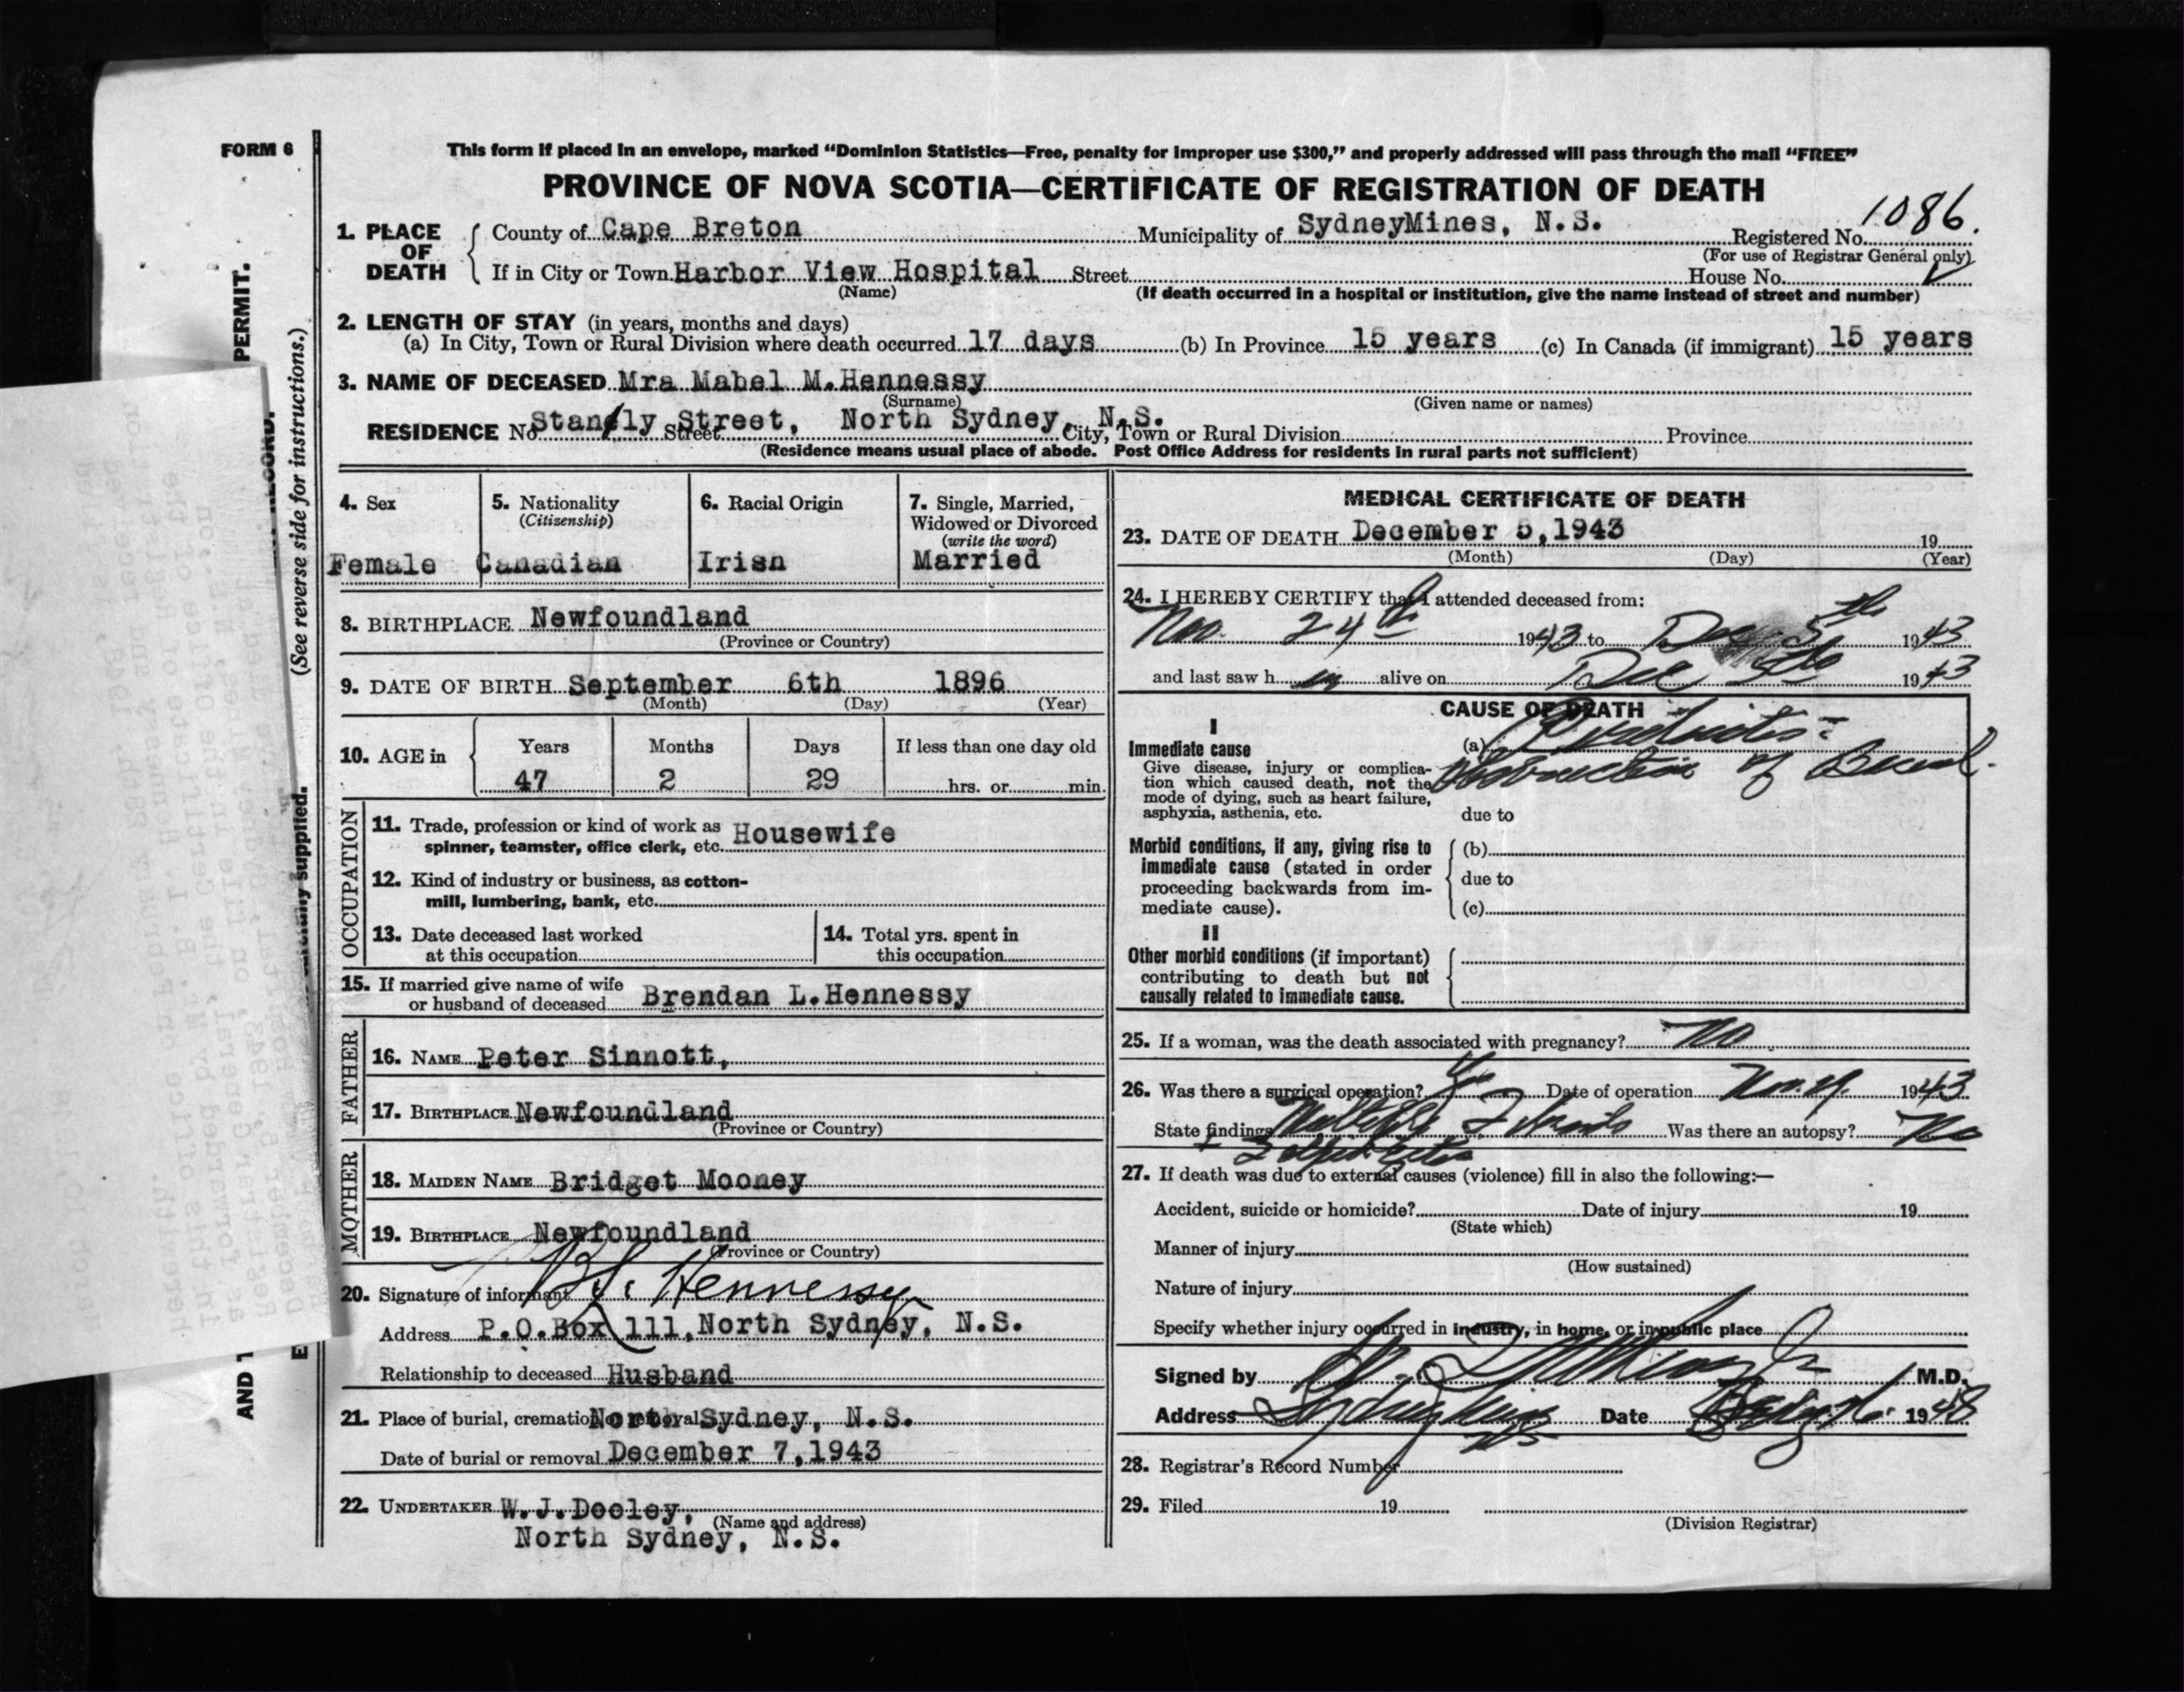 FORM 6
This form if placed in an envelope, marked "Dominion Statistics—Free, penalty for improper use $300," and properly addressed will pass through the mail "FREE"
PROVINCE OF NOVA SCOTIA—CERTIFICATE OF REGISTRATION OF DEATH
1086.
1. PLACE OF DEATH
County of Cape Breton Municipality of SydneyMines, N.S. Registered No.
(For use of Registrar General only)
If in City or Town Harbor View Hospital Street House No.
(Name) (If death occurred in a hospital or institution, give the name instead of street and number)
2. LENGTH OF STAY (in years, months and days)
(a) In City, Town or Rural Division where death occurred 17 days (b) In Province 15 years (c) In Canada (if immigrant) 15 years
3. NAME OF DECEASED Mrs Mabel M.Hennessy
(Surname) (Given name or names)
RESIDENCE No. Stanely Street, North Sydney, N.S.
Street City, Town or Rural Division Province
(Residence means usual place of abode. Post Office Address for residents in rural parts not sufficient)
4. Sex
Female
5. Nationality
(Citizenship)
Canadian
6. Racial Origin
Irish
7. Single, Married,
Widowed or Divorced
(write the word)
Married
8. BIRTHPLACE Newfoundland
(Province or Country)
9. DATE OF BIRTH September 6th 1896
(Month) (Day) (Year)
10. AGE in
Years Months Days If less than one day old
47 2 29 hrs. or min.
OCCUPATION
11. Trade, profession or kind of work as
spinner, teamster, office clerk, etc. Housewife
12. Kind of industry or business, as cotton-
mill, lumbering, bank, etc.
13. Date deceased last worked
at this occupation
14. Total yrs. spent in
this occupation
15. If married give name of wife
or husband of deceased Brendan L.Hennessy
FATHER
16. NAME Peter Sinnott,
17. BIRTHPLACE Newfoundland
(Province or Country)
MOTHER
18. MAIDEN NAME Bridget Mooney
19. BIRTHPLACE Newfoundland
(Province or Country)
20. Signature of informant B.L. Hennessy
Address P.O.Box 111, North Sydney, N.S.
Relationship to deceased Husband
21. Place of burial, cremation or removal North Sydney, N.S.
Date of burial or removal December 7,1943
22. UNDERTAKER W.J.Dooley,
(Name and address)
North Sydney, N.S.
MEDICAL CERTIFICATE OF DEATH
23. DATE OF DEATH December 5,1943 19
(Month) (Day) (Year)
24. I HEREBY CERTIFY that I attended deceased from:
Nov. 24th 1943 to Dec 5th 1943
and last saw h er alive on Dec 5th 1943
CAUSE OF DEATH
I
Immediate cause (a)
Obstruction of Bowel.
Give disease, injury or complica-
tion which caused death, not the
mode of dying, such as heart failure,
asphyxia, asthenia, etc.
due to
Morbid conditions, if any, giving rise to
immediate cause (stated in order
proceeding backwards from im-
mediate cause).
(b)
due to
(c)
II
Other morbid conditions (if important)
contributing to death but not
causally related to immediate cause.
25. If a woman, was the death associated with pregnancy? No
26. Was there a surgical operation? Yes Date of operation Nov. 1943
State findings Multiple Fibroids Was there an autopsy? No
+ Salpingitis
27. If death was due to external causes (violence) fill in also the following:—
Accident, suicide or homicide? Date of injury 19
(State which)
Manner of injury
(How sustained)
Nature of injury
Specify whether injury occurred in industry, in home, or in public place
Signed by M.D.
Address Sydney Mines Date 1948
NS
28. Registrar's Record Number
29. Filed 19
(Division Registrar)
PERMIT.
(See reverse side for instructions.)
supplied.
AND